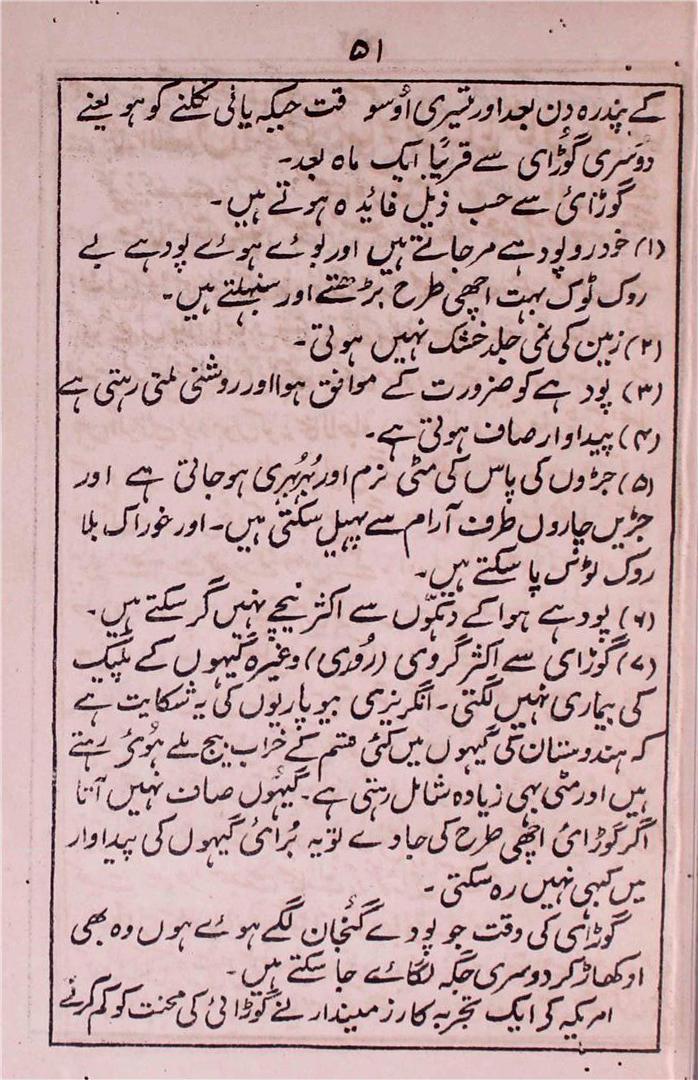 ۵۱
کے پندرہ دن بعد اور تیسری اوسو قت جبکہ بالی نکلنے کو ہو یعنے
دوسری گوڑای سے قریبًا ایک ماہ بعد۔
گوڑائ سے حسب ذیل فائیدہ ہوتے ہیں۔
(۱) خود رو پودہے مرجاتے ہیں اور بوئے ہوئے پودہے بے
روک ٹوک بہت اچھی طرح بڑھتے اور سنبہلتے ہیں۔
(۲) زمین کی نمی جلد خشک نہیں ہوتی۔
(۳) پودہے کو ضرورت کے موافق ہوا اور روشنی ملتی رہتی ہے
(۴) پیداوار صاف ہوتی ہے۔
(۵) جڑوں کی پاس کی مٹی نرم اور بُہربُہری ہوجاتی ہے اور
جڑیں چاروں طرف آرام سے پہیل سکتی ہیں۔ اور غوراک بلا
روک ٹوک پا سکتے ہیں۔
(۶) پودہے ہوا کے دہکّوں سے اکثر نیچے نہیں گر سکتے ہیں۔
(۷) گوڑای سے اکثر گروی (روری) وغیرہ گیہوں کے
کی بیماری نہیں لگتی۔ انگریزی بیوپاریوں کی یہ شکایت ہے
کہ ہندوستان کی گیہوں میں کئی قسم کے خراب بیج ملے ہوئ رہتے
ہیں اور مٹی بہی زیادہ شامل رہتی ہے۔ گیہُوں صاف نہیں آتا
اگر گوڑائ اچھی طرح کی جاوے تو یہ بُرائ گیہوں کی پیداوار
میں کبہی نہیں رہ سکتی۔
گوڑای کی وقت جو پودے گنجان لگے ہوئے ہوں وہ بھی
اوکھاڑ کر دوسری جگہ لگائے جا سکتے ہیں۔
امریکہ کی ایک تجربہ کار زمیندار نے گوڑائی کی محنت کو کم کرنے